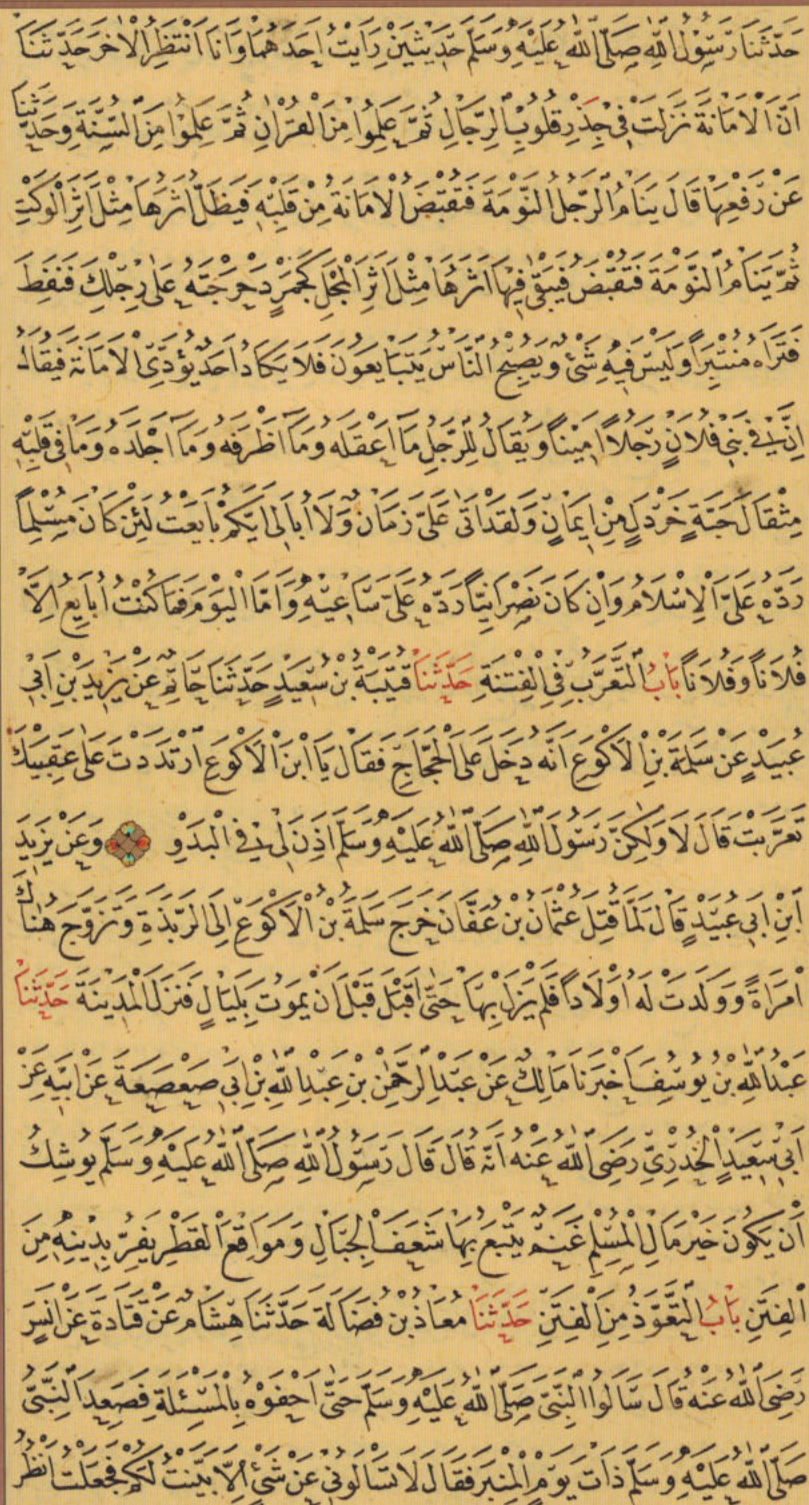 حَدَّثَنَا رَسُولُ اللّٰهِ صَلَّى اللّٰهُ عَلَيْهِ وَسَلَّمَ حَدِيثَيْنِ رَاَيْتُ اَحَدَهُمَا وَاَنَا اَنْتَظِرُ الْاٰخَرَ حَدَّثَنَا
اَنَّ الْاَمَانَةَ نَزَلَتْ فِي جِذْرِ قُلُوبِ الرِّجَالِ ثُمَّ عَلِمُوا مِنَ الْقُرْاٰنِ ثُمَّ عَلِمُوا مِنَ السُّنَّةِ وَحَدَّثَنَا
عَنْ رَفْعِهَا قَالَ يَنَامُ الرَّجُلُ النَّوْمَةَ فَتُقْبَضُ الْاَمَانَةُ مِنْ قَلْبِهِ فَيَظَلُّ اَثَرُهَا مِثْلَ اَثَرِ الْوَكْتِ
ثُمَّ يَنَامُ النَّوْمَةَ فَتُقْبَضُ فَيَبْقٰى فِيهَا اَثَرُهَا مِثْلَ اَثَرِ الْمَجْلِ كَجَمْرٍ دَحْرَجْتَهُ عَلٰى رِجْلِكَ فَنَفِطَ
فَتَرَاهُ مُنْتَبِرًا وَلَيْسَ فِيهِ شَىْءٌ وَيُصْبِحُ النَّاسُ يَتَبَايَعُونَ فَلَا يَكَادُ اَحَدٌ يُؤَدِّي الْاَمَانَةَ فَيُقَالُ
اِنَّ فِي بَنِي فُلَانٍ رَجُلًا اَمِينًا وَيُقَالُ لِلرَّجُلِ مَا اَعْقَلَهُ وَمَا اَظْرَفَهُ وَمَا اَجْلَدَهُ وَمَا فِي قَلْبِهِ
مِثْقَالُ حَبَّةِ خَرْدَلٍ مِنْ اِيمَانٍ وَلَقَدْ اَتٰى عَلَيَّ زَمَانٌ وَلَا اُبَالِي اَيُّكُمْ بَايَعْتُ لَئِنْ كَانَ مُسْلِمًا
رَدَّهُ عَلَيَّ الْاِسْلَامُ وَاِنْ كَانَ نَصْرَانِيًّا رَدَّهُ عَلَيَّ سَاعِيهِ وَاَمَّا الْيَوْمَ فَمَا كُنْتُ اُبَايِعُ اِلَّا
فُلَانًا وَفُلَانًا بَابُ التَّعَرُّبِ فِي الْفِتْنَةِ حَدَّثَنَا قُتَيْبَةُ بْنُ سَعِيدٍ حَدَّثَنَا حَاتِمٌ عَنْ يَزِيدَ بْنِ اَبِي
عُبَيْدٍ عَنْ سَلَمَةَ بْنِ الْاَكْوَعِ اَنَّهُ دَخَلَ عَلَى الْحَجَّاجِ فَقَالَ يَا ابْنَ الْاَكْوَعِ ارْتَدَدْتَ عَلٰى عَقِبَيْكَ
تَعَرَّبْتَ قَالَ لَا وَلٰكِنَّ رَسُولَ اللّٰهِ صَلَّى اللّٰهُ عَلَيْهِ وَسَلَّمَ اَذِنَ لِي فِي الْبَدْوِ وَعَنْ يَزِيدَ
ابْنِ اَبِي عُبَيْدٍ قَالَ لَمَّا قُتِلَ عُثْمَانُ بْنُ عَفَّانَ خَرَجَ سَلَمَةُ بْنُ الْاَكْوَعِ اِلَى الرَّبَذَةِ وَتَزَوَّجَ هُنَاكَ
امْرَاَةً وَوَلَدَتْ لَهُ اَوْلَادًا فَلَمْ يَزَلْ بِهَا حَتّٰى اَقْبَلَ قَبْلَ اَنْ يَمُوتَ بِلَيَالٍ فَنَزَلَ الْمَدِينَةَ حَدَّثَنَا
عَبْدُ اللّٰهِ بْنُ يُوسُفَ اَخْبَرَنَا مَالِكٌ عَنْ عَبْدِ الرَّحْمٰنِ بْنِ عَبْدِ اللّٰهِ بْنِ اَبِي صَعْصَعَةَ عَنْ اَبِيهِ عَنْ
اَبِي سَعِيدٍ الْخُدْرِيِّ رَضِيَ اللّٰهُ عَنْهُ اَنَّهُ قَالَ قَالَ رَسُولُ اللّٰهِ صَلَّى اللّٰهُ عَلَيْهِ وَسَلَّمَ يُوشِكُ
اَنْ يَكُونَ خَيْرَ مَالِ الْمُسْلِمِ غَنَمٌ يَتْبَعُ بِهَا شَعَفَ الْجِبَالِ وَمَوَاقِعَ الْقَطْرِ يَفِرُّ بِدِينِهِ مِنَ
الْفِتَنِ بَابُ التَّعَوُّذِ مِنَ الْفِتَنِ حَدَّثَنَا مُعَاذُ بْنُ فَضَالَةَ حَدَّثَنَا هِشَامٌ عَنْ قَتَادَةَ عَنْ اَنَسٍ
رَضِيَ اللّٰهُ عَنْهُ قَالَ سَاَلُوا النَّبِيَّ صَلَّى اللّٰهُ عَلَيْهِ وَسَلَّمَ حَتّٰى اَحْفَوْهُ بِالْمَسْئَلَةِ فَصَعِدَ النَّبِيُّ
صَلَّى اللّٰهُ عَلَيْهِ وَسَلَّمَ ذَاتَ يَوْمٍ الْمِنْبَرَ فَقَالَ لَا تَسْاَلُونِي عَنْ شَىْءٍ اِلَّا بَيَّنْتُ لَكُمْ فَجَعَلْتُ اَنْظُرُ